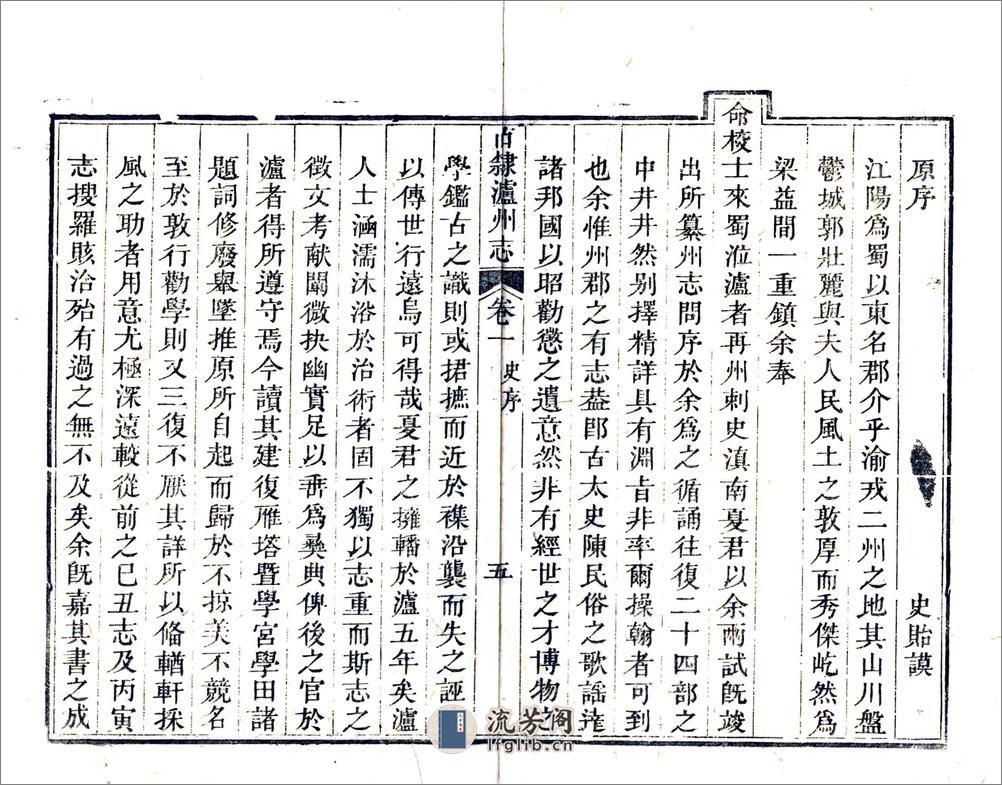 原序 史貽謨
江陽爲蜀以東名郡介乎渝戎二州之地其山川盤
鬱城郭壯麗與夫人民風土之敦厚而秀傑屹然爲
梁益間一重鎮余奉
命校士來蜀涖瀘者再州刺史滇南夏君以余兩試旣竣
出所纂州志問序於余爲之循誦往復二十四部之
中井井然别擇精詳具有淵㫖非率爾操翰者可到
也余惟州郡之有志葢即古太史陳民俗之歌謡達
諸邦國以昭勸懲之遺意然非有經世之才博物之
直隸瀘州志 卷一 史序 五
學鑑古之識則或捃摭而近於襍沿襲而失之誣
以傳世行遠烏可得哉夏君之擁轓於瀘五年矣瀘
人士涵濡沐浴於治術者固不獨以志重而斯志之
徵文考献闡微抉幽實足以垂爲彞典俾後之官於
瀘者得所遵守焉今讀其建復雁塔暨學宮學田諸
題詞修廢舉墜推原所自起而歸於不掠美不競名
至於敦行勸學則又三復不厭其詳所以偹輶軒採
風之助者用意尤極深遠較從前之己丑志及丙寅
志搜羅賅洽殆有過之無不及矣余旣嘉其書之成
流芳阁
lfglib.cn